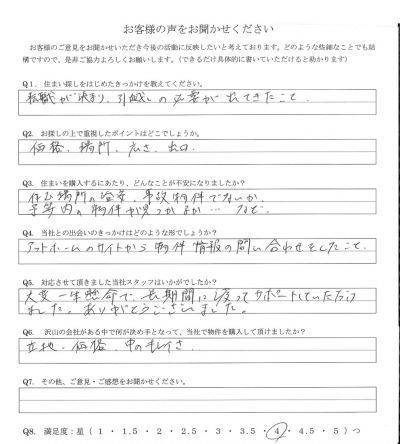 お客様の声をお聞かせください
お客様のご意見をお聞かせいただき今後の活動に反映したいと考えております。どのような些細なことでも結
構ですので、是非ご協力よろしくお願いします。（できるだけ具体的に書いていただけると助かります）
Q1. 住まい探しをはじめたきっかけを教えてください。
転職が決まり、引越しの必要が出てきたこと
Q2. お探しの上で重視したポイントはどこでしょうか。
価格、場所、広さ、
Q3. 住まいを購入するにあたり、どんなことが不安になりましたか？
住む場所の治安、事故物件でないか、
予算内の物件が見つかるか… など。
Q4. 当社との出会いのきっかけはどのような形でしょうか？
アットホームのサイトから物件情報の問い合わせをしたこと。
Q5. 対応させて頂きました当社スタッフはいかがでしたか？
大変一生懸命で、長期間に渡ってサポートしていただけ
ました。ありがとうございました。
Q6. 沢山の会社がある中で何が決め手となって、当社で物件を購入して頂けましたか？
立地、価格、中のキレイさ
Q7. その他、ご意見・ご感想をお聞かせください。
Q8. 満足度：星（ 1 ・ 1.5 ・ 2 ・ 2.5 ・ 3 ・ 3.5 ・ 4 ・ 4.5 ・ 5 ）つ